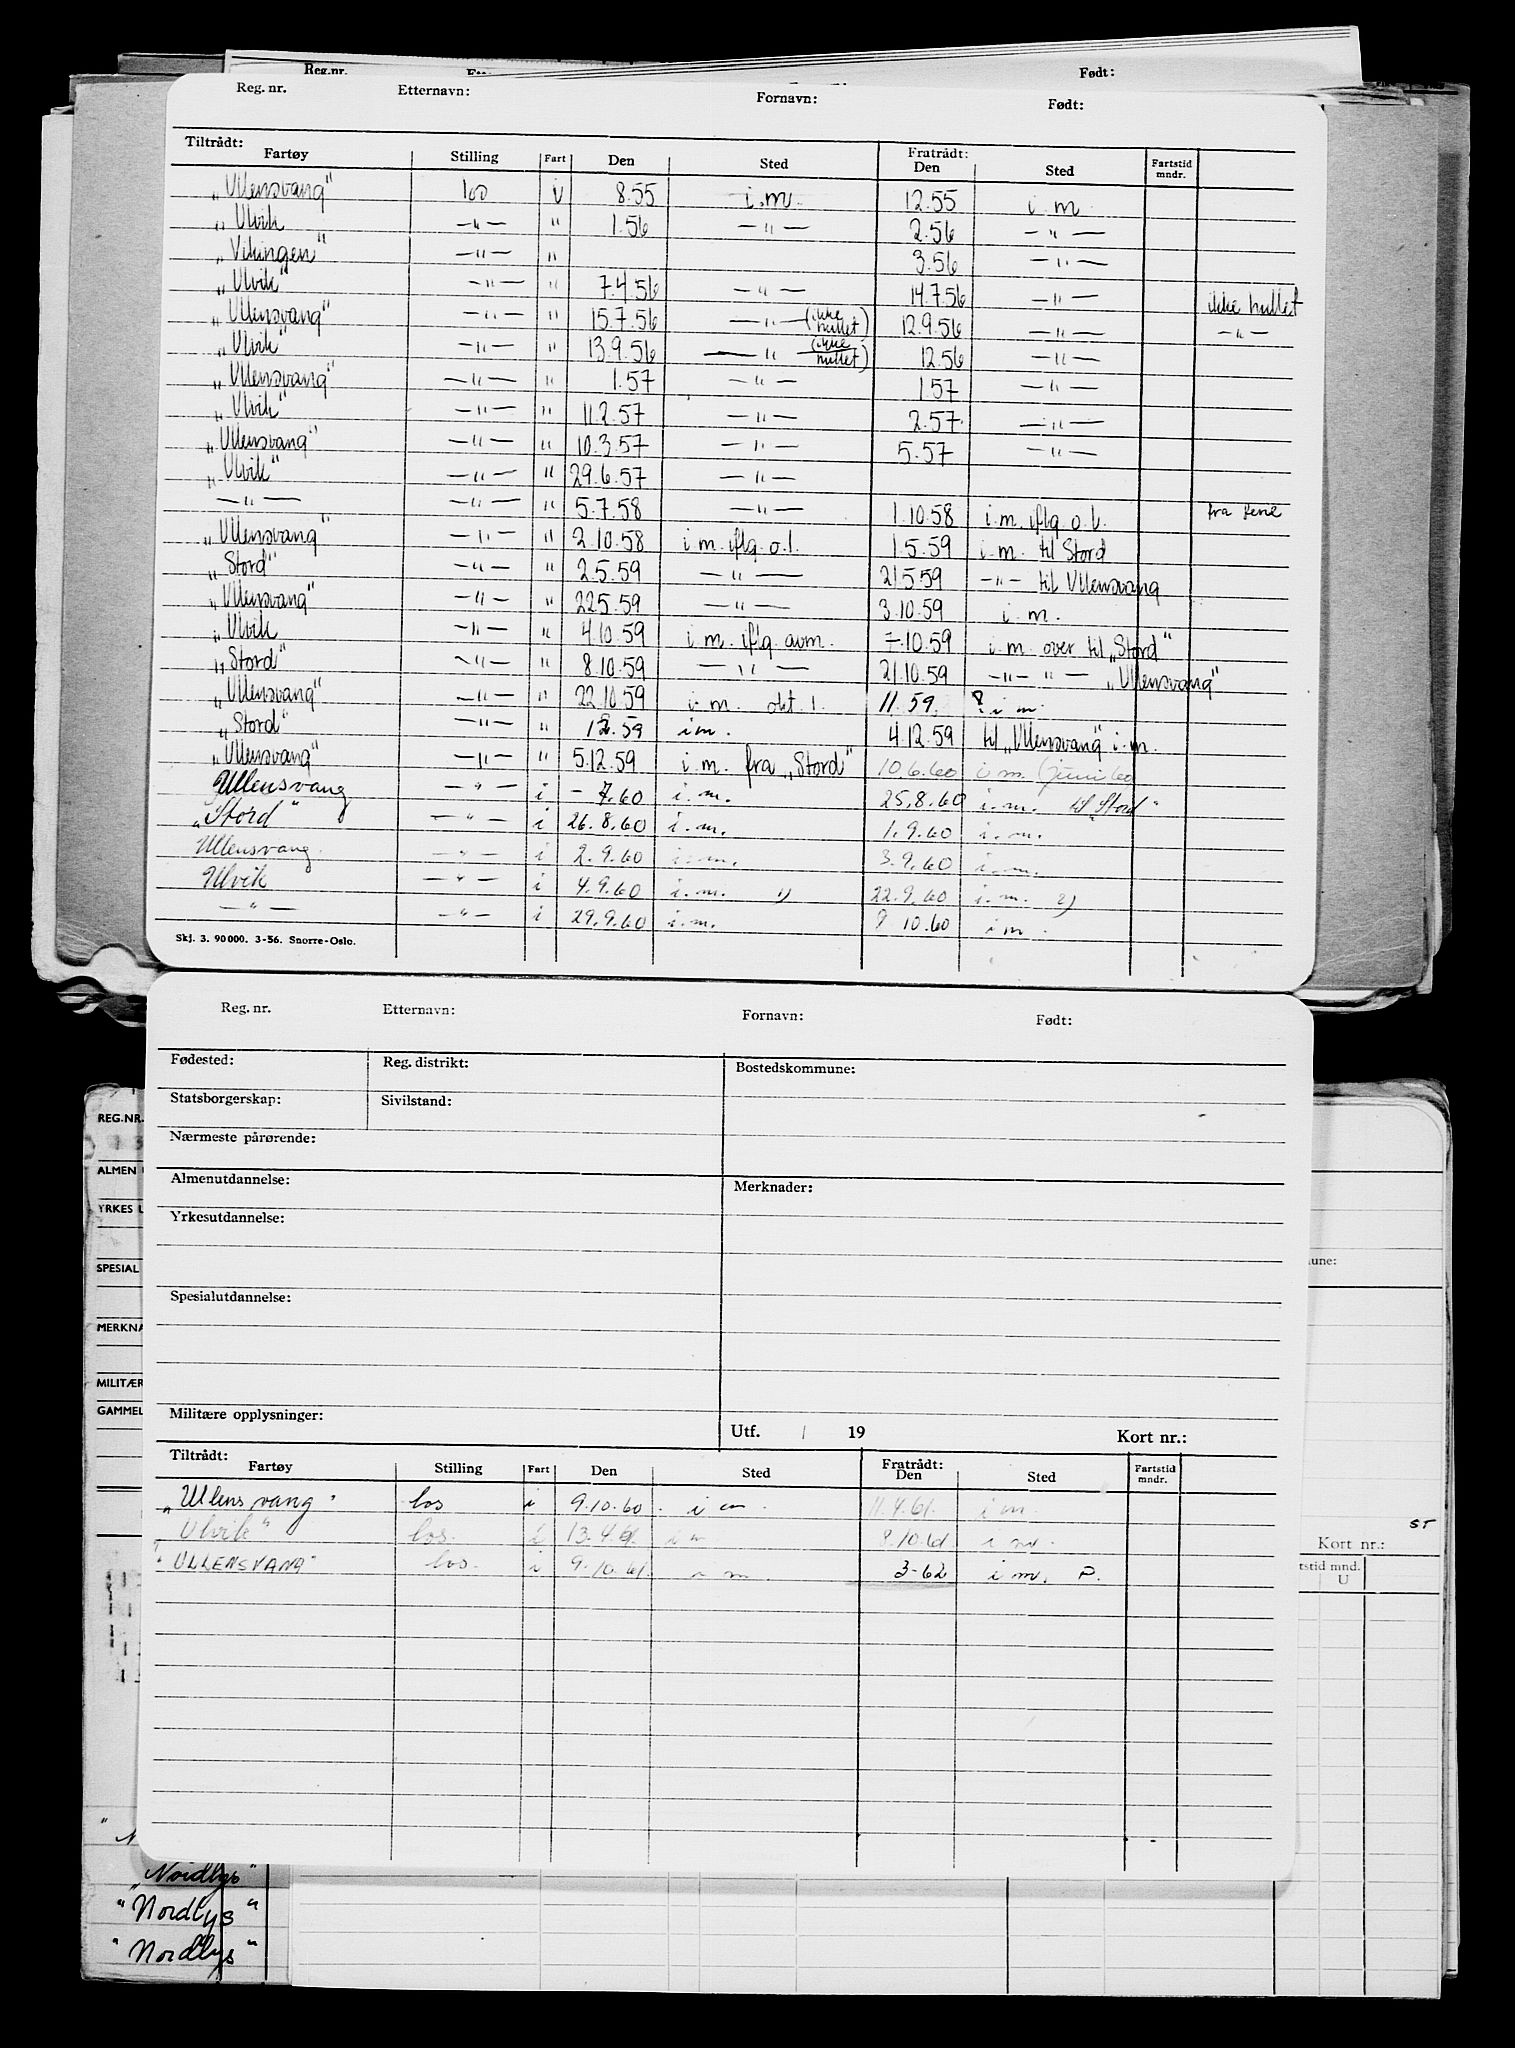 Reg.nr. Født:
Reg. nr. Etternavn: Fornavn: Født:
Tiltrådt: Fratrådt:
Fartøy Stilling Fart Den Sted Den Sted Fartstid mndr.
„Ullensvang“ i 8.55 i.m. 12.55 i.m.
„Ulvik -"- " 1.56 -"- 2.56 -"-
„Vikingen“ -"- " 3.56 -"-
„Ulvik“ -"- " 7.4.56 -"- 14.7.56 -"- ikke hullet
„Ullensvang“ -"- " 15.7.56 -"- (ikke hullet) 12.9.56 -"- -"-
„Ulvik“ -"- " 13.9.56 -"- (ikke hullet) 12.56 -"-
„Ullensvang“ -"- " 1.57 -"- 1.57 -"-
„Ulvik“ -"- " 11.2.57 -"- 2.57. -"-
„Ullensvang“ -"- " 10.3.57 -"- 5.57 -"-
„Ulvik“ -"- " 29.6.57 -"-
-"- -"- " 5.7.58 -"- 1.10.58 i.m. iflg. o.l. fra ferie
„Ullensvang“ -"- " 2.10.58 i.m. iflg. o.l. 1.5.59 i.m. til Stord
„Stord“ -"- " 2.5.59 -"- 21.5.59 -"- til Ullensvang
„Ullensvang“ -"- " 22.5.59 -"- 3.10.59 i.m.
„Ulvik -"- " 4.10.59 i.m. iflg. avm. 7.10.59 i.m. over til „Stord“
„Stord“ -"- " 8.10.59 -"- 21.10.59 -"- "- „Ullensvang“
„Ullensvang“ -"- " 22.10.59 i.m. okt. l. 11.59. ? i m.
„Stord“ -"- " 12.59 i m. 4.12.59 til „Ullensvang“ i.m.
„Ullensvang“ -"- " 5.12.59 i.m. fra „Stord“ 10.6.60 i m (juni 60
Ullensvang -"- i - 7.60 i.m. 25.8.60 i.m. til „Stord“
„Stord“ -"- i 26.8.60 i.m. 1.9.60 i.m.
Ullensvang. -"- i 2.9.60 i.m. 3.9.60 i.m.
Ulvik -"- i 4.9.60 i.m. 1) 22.9.60 i.m. 2)
-"- -"- i 29.9.60 i.m. 8 10.60 i m.
Skj. 3. 90000. 3-56. Snorre-Oslo.
Reg. nr. Etternavn: Fornavn: Født:
Fødested: Reg. distrikt: Bostedskommune:
Statsborgerskap: Sivilstand:
Nærmeste pårørende:
Almenutdannelse: Merknader:
Yrkesutdannelse:
Spesialutdannelse:
Militære opplysninger:
Utf. / 19 Kort nr.:
Tiltrådt: Fratrådt:
Fartøy Stilling Fart Den Sted Den Sted Fartstid mndr.
„Ullensvang“ los i 9.10.60. i m. 11.4.61. i m.
Ulvik“ los. i 13.4.61 i m 8.10.61 i m.
"ULLENSVANG" los. i 9.10.61. i m. 3-62 i m. P.
REG.NR.
ALMEN
YRKES
SPESIAL
MERKNA
MILITÆR
GAMMEL
mune:
ST
Kort nr.:
tstid mnd.
U
„Nordlys“
"Nordlys"
"Nordlys"